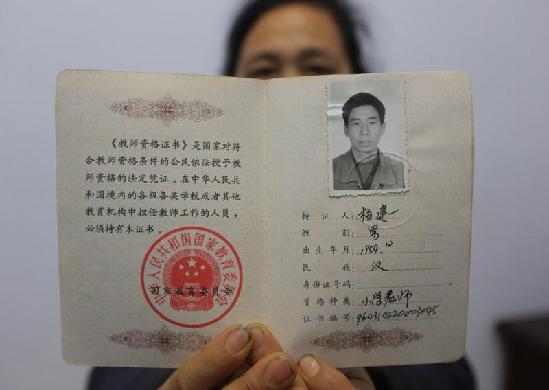 《教师资格证书》是国家对符
合教师资格条件的公民依法授予教
师资格的决定凭证。在中华人民共
和国境内的各级各类学校或者其他
教育机构中担任教师工作的人员,
必须持有本证书。
中华人民共和国国家教育委员会
国家教育委员会
持证人 杨建一
性别 男
出生年月 1954.10
民族 汉
身份证号码
资格种类 小学教师
证书编号